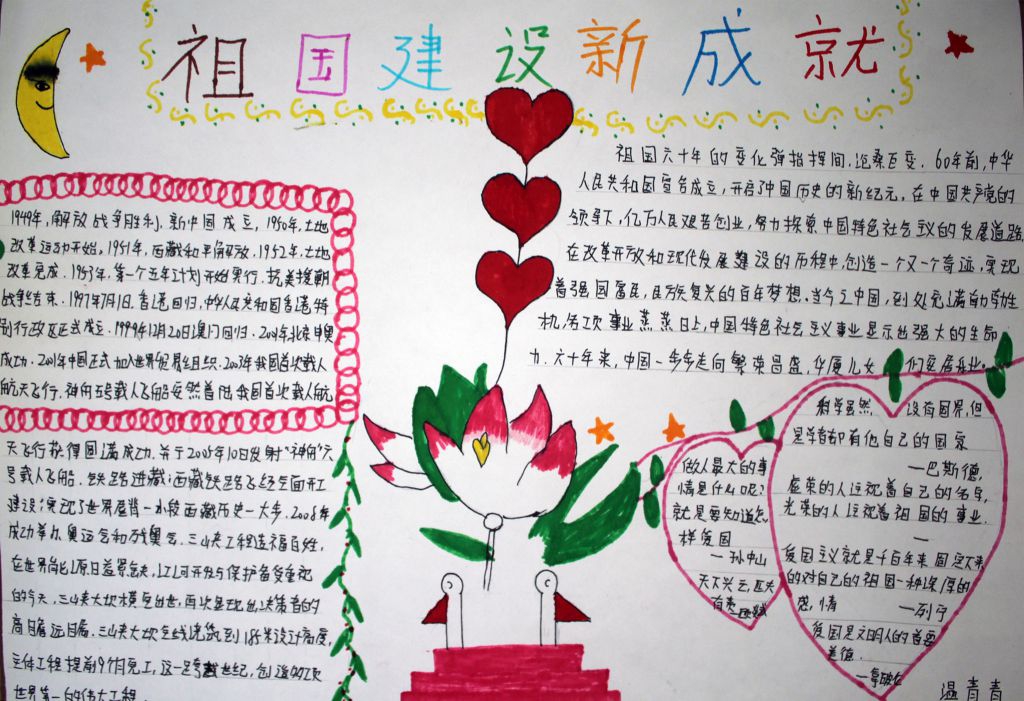 祖国建设新成就
祖国六十年的变化弹指挥间,沧桑巨变.60年前,中华
人民共和国宣告成立,开启了中国历史的新纪元,在中国共产党的
领导下,亿万人民艰苦创业,努力探索中国特色社会主义的发展道路
在改革开放和现代发展建设的历程中,创造一个又一个奇迹,实现
着强国富民,民族复兴的百年梦想.当今之中国,到处充满勃勃生
机,各项事业蒸蒸日上,中国特色社会主义事业显示出强大的生命
力.六十年来,中国一步步走向繁荣昌盛,华厦儿女们安居乐业.
1949年,解放战争胜利,新中国成立,1950年,土地
改革运动开始,1951年,西藏和平解放,1952年,土地
改革完成.1953年,第一个五年计划开始实行.抗美援朝
战争结束.1997年7月1日.香港回归,中华人民共和国香港特
别行政区正式成立.1999年12月20日澳门回归.2001年北京申奥
成功.2001年中国正式加入世界贸易组织.2003年我国首次载人
航天飞行.神舟5号载人飞船安然着陆我国首次载人航
天飞行获得圆满成功.并于2005年10日发射"神舟"六
号载人飞船.铁路进藏:西藏铁路飞经全面开工
建设:实现了世界屋脊一小段西藏历史一大步.2008年
成功举办奥运会和残奥会.三峡工程造福百姓,
在世界能源日益紧缺,
的今天,三峡大坝横空出世,再次显现出
高日瞩远目瞩.三峡大坝全线浇筑到185米设计高度,
主体工程提前9个月完工,这一跨越世纪,创造90项
世界第一的伟大工程.
科学虽然没有国界,但
是学者却有他自己的国家
—巴斯德,
虚荣的人注视着自己的名字,
光荣的人注视着祖国的事业.
—
爱国主义就是千百年来固定下来
的对自己的祖国一种深厚的
感,情 —列宁
爱国是文明人的首要
美德.
—拿破仑
做人最大的事
情是什么呢?
就是要知道怎
样爱国
—孙中山
天下兴亡,匹夫
有责
温青青